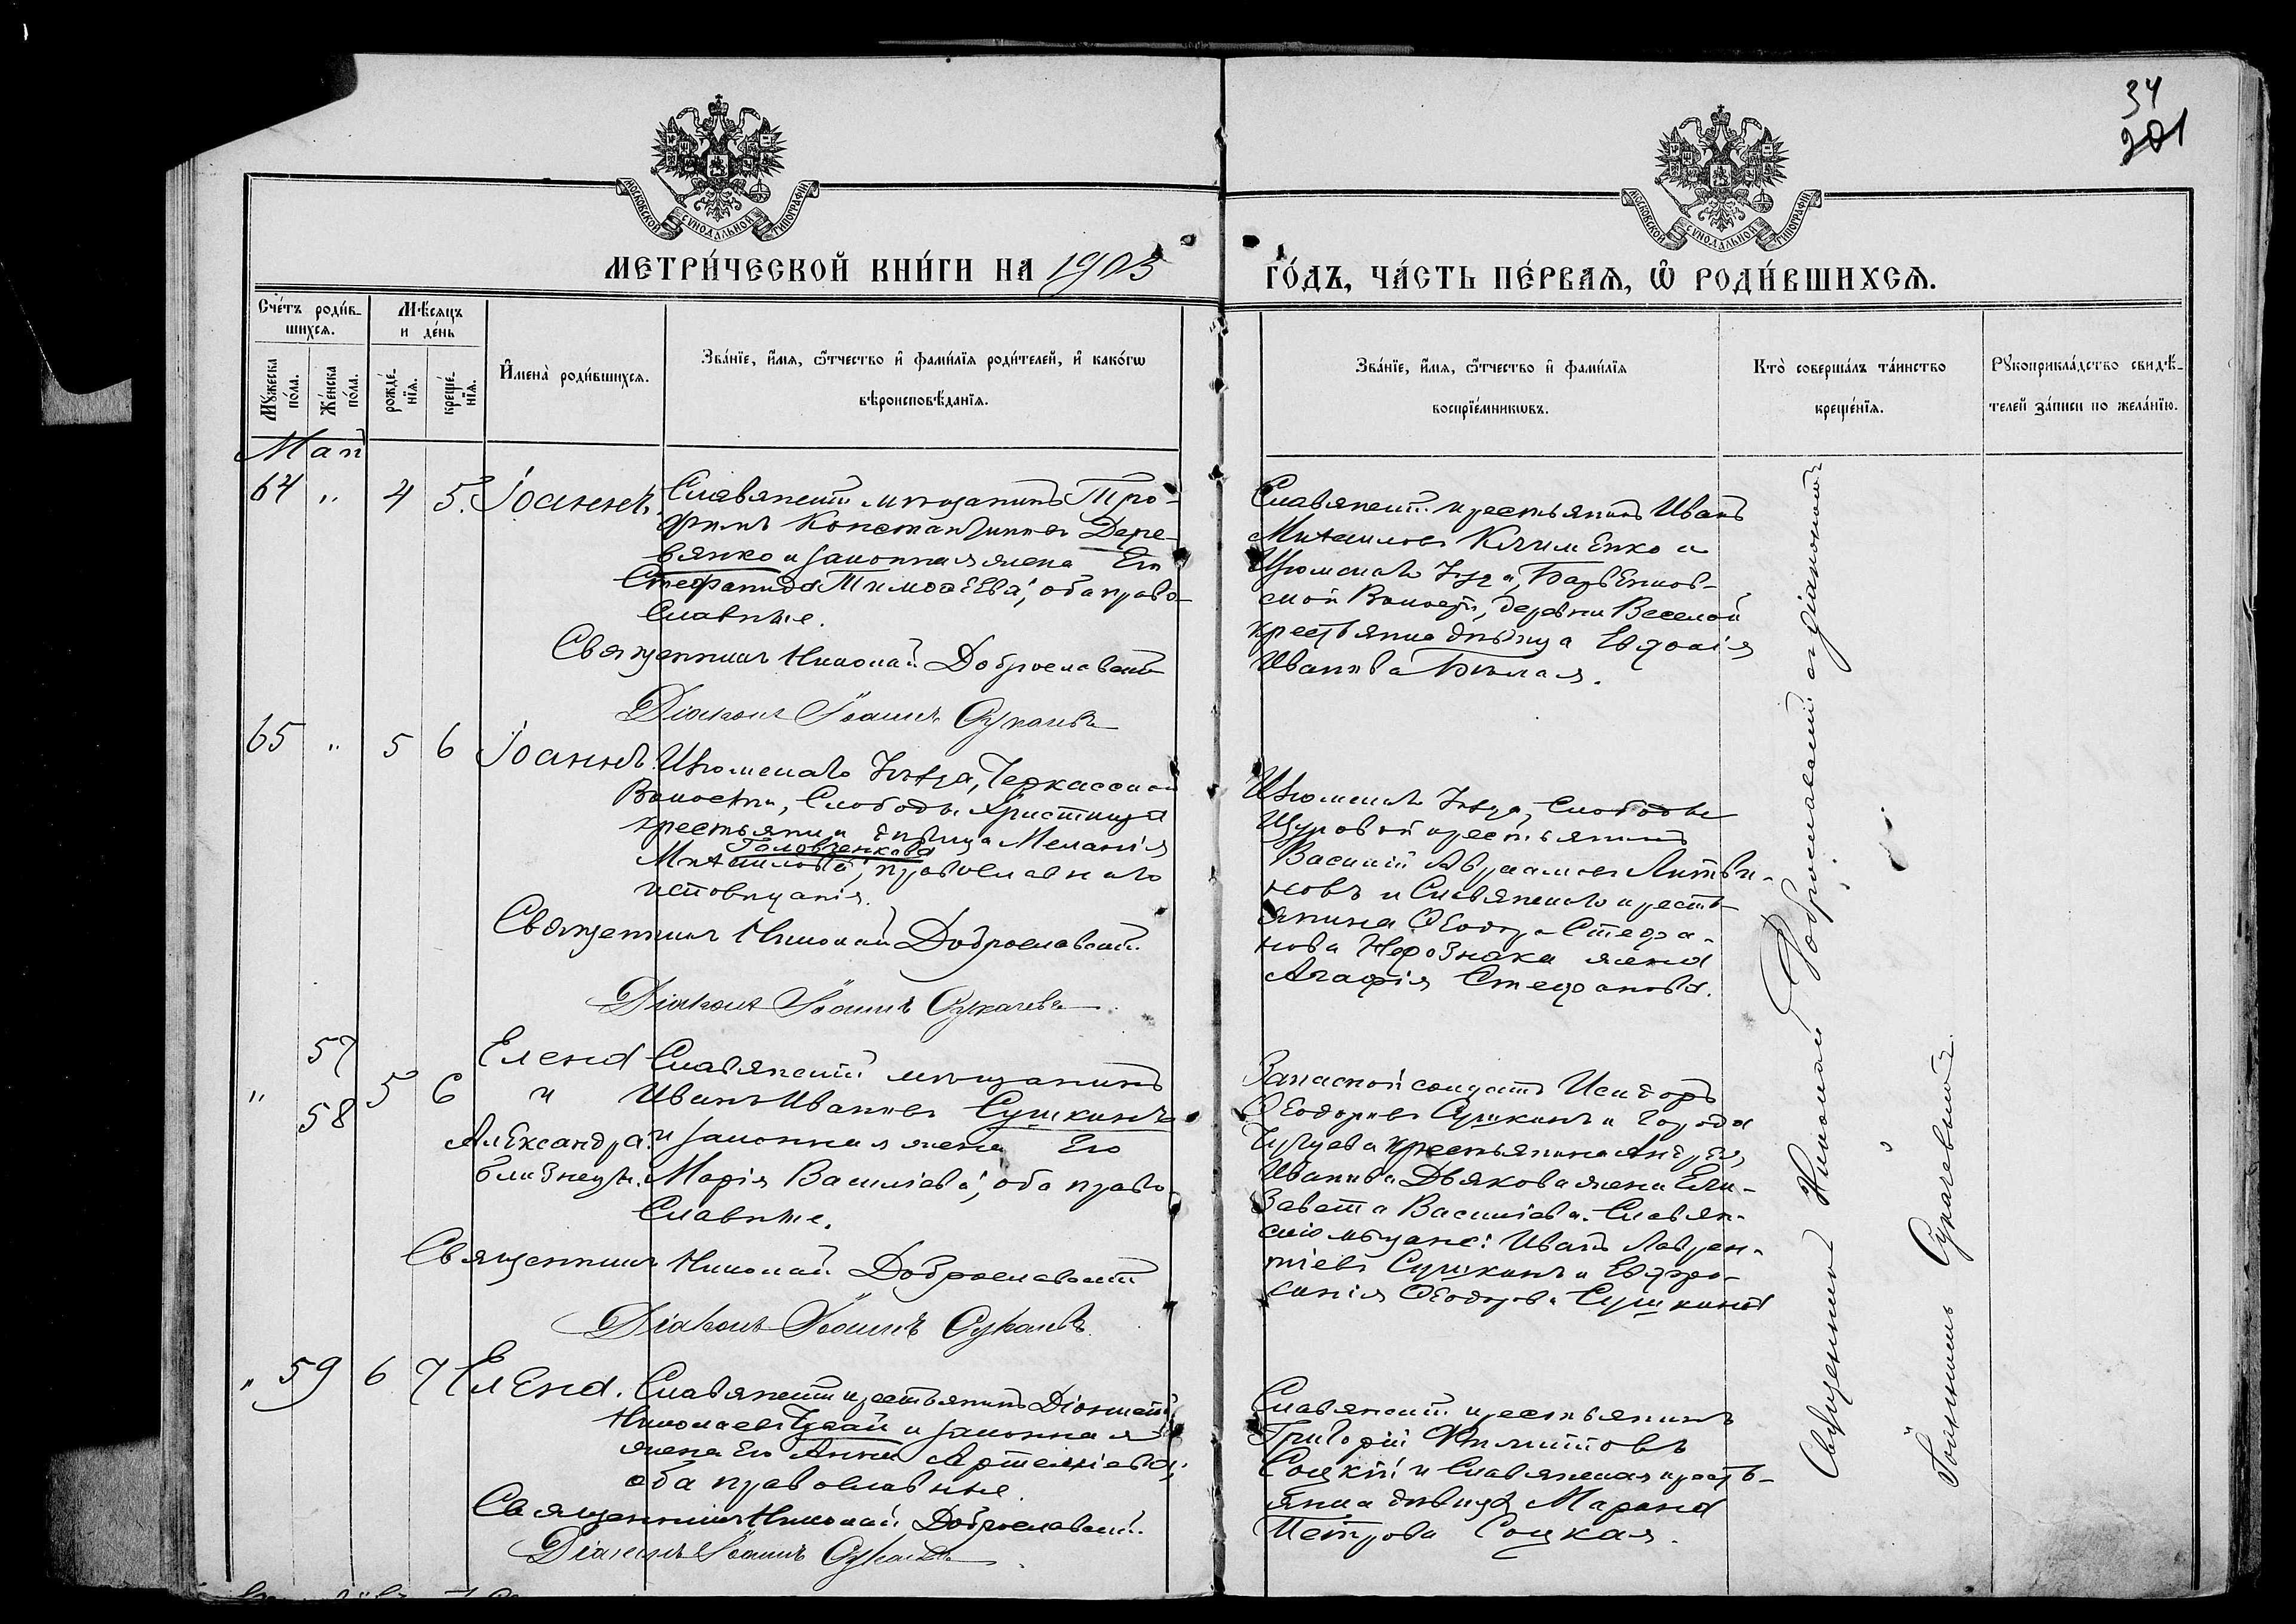 34
201
МОСКОВСКОЙ СѴНОДАЛЬНОЙ ТИПОГРАФІИ
МОСКОВСКОЙ СѴНОДАЛЬНОЙ ТИПОГРАФІИ
МЕТРИ́ЧЕСКОЙ КНИ́ГИ НА 1903
ГО́ДЪ, ЧА́СТЬ ПЕ́РВАѦ, Ѡ҆ РОДИ́ВШИХСѦ.
Сче́тъ роди́в-
шихся.
Му́жеска
по́ла.
Же́нска
по́ла.
Мѣ́сяцъ
и де́нь
рожде́-
нїя.
креще́-
нїя.
И҆мена̀ роди́вшихся.
Зва́нїе, и҆́мя, ѻ҆́тчество и҆ фами́лїя роди́телей, и҆ како́гѡ
вѣроисповѣ́данїя.
Зва́нїе, и҆́мя, ѻ҆́тчество и҆ фами́лїя
воспрїе́мникѡвъ.
Кто̀ соверша́лъ та́инство
креще́нїя.
Рукоприкла́дство свидѣ́-
телей за́писи по жела́нїю.
Май
64 " 4 5. Іоаннъ.
Славянскій мѣщанинъ Тро-
фимъ Константиновъ Дере-
вянко и законная жена Его
Стефанида Тимоѳеева, оба право-
славные.
Священникъ Николай Доброславскій
Діаконъ Іоаннъ Сукачевъ
Славянскій крестьянинъ Иванъ
Михаиловъ Клименко и
Изюмскаго Уѣзда, Барвенков-
ской Волости, деревни Веселой
крестьянка дѣвица Евдокія
Иванова Бѣлая.
65 " 5 6 Іоаннъ.
Изюмскаго Уѣзда, Черкасской
Волости, Слободы Христища
крестьянка дѣвица Меланія
Головченкова
Михаилова, православнаго
исповѣданія.
Священникъ Николай Доброславскій.
Діаконъ Іоаннъ Сукачевъ
Изюмскаго Уѣзда, Слободы
Щуровой крестьянинъ
Василій Авраамовъ Литви-
новъ и Славянскаго кресть-
янина Ѳеодора Стефа-
нова Нерознака жена
Агафія Стефанова.
57
" 5 6
58
Елена
и
Александра
близнецы.
Славянскій мѣщанинъ
Иванъ Ивановъ Сушкинъ
и законная жена Его
Марія Васильева, оба право-
славные.
Священникъ Николай Доброславскій
Діаконъ Іоаннъ Сукачевъ
Запасной солдатъ Исидоръ
Ѳеодоровъ Сушкинъ и города
Чугуева крестьянина Андрея
Иванова Дьякова жена Ели-
завета Васильева. Славян-
скіе мѣщане: Иванъ Лаврен-
тіевъ Сушкинъ и Евфро-
синія Ѳеодорова Сушкина
" 59 6 7 Елена.
Славянскій крестьянинъ Діонисій
Николаевъ и законная
жена Его Анна Артемьева,
оба православные.
Священникъ Николай Доброславскій.
Діаконъ Іоаннъ Сукачевъ
Славянскій крестьянинъ
Григорій Филипповъ
Соцкій и Славянская кресть-
янка дѣвица Марина
Петрова Соцкая.
Священникъ Николай Доброславскій съ діакономъ
Іоанномъ Сукачевымъ.